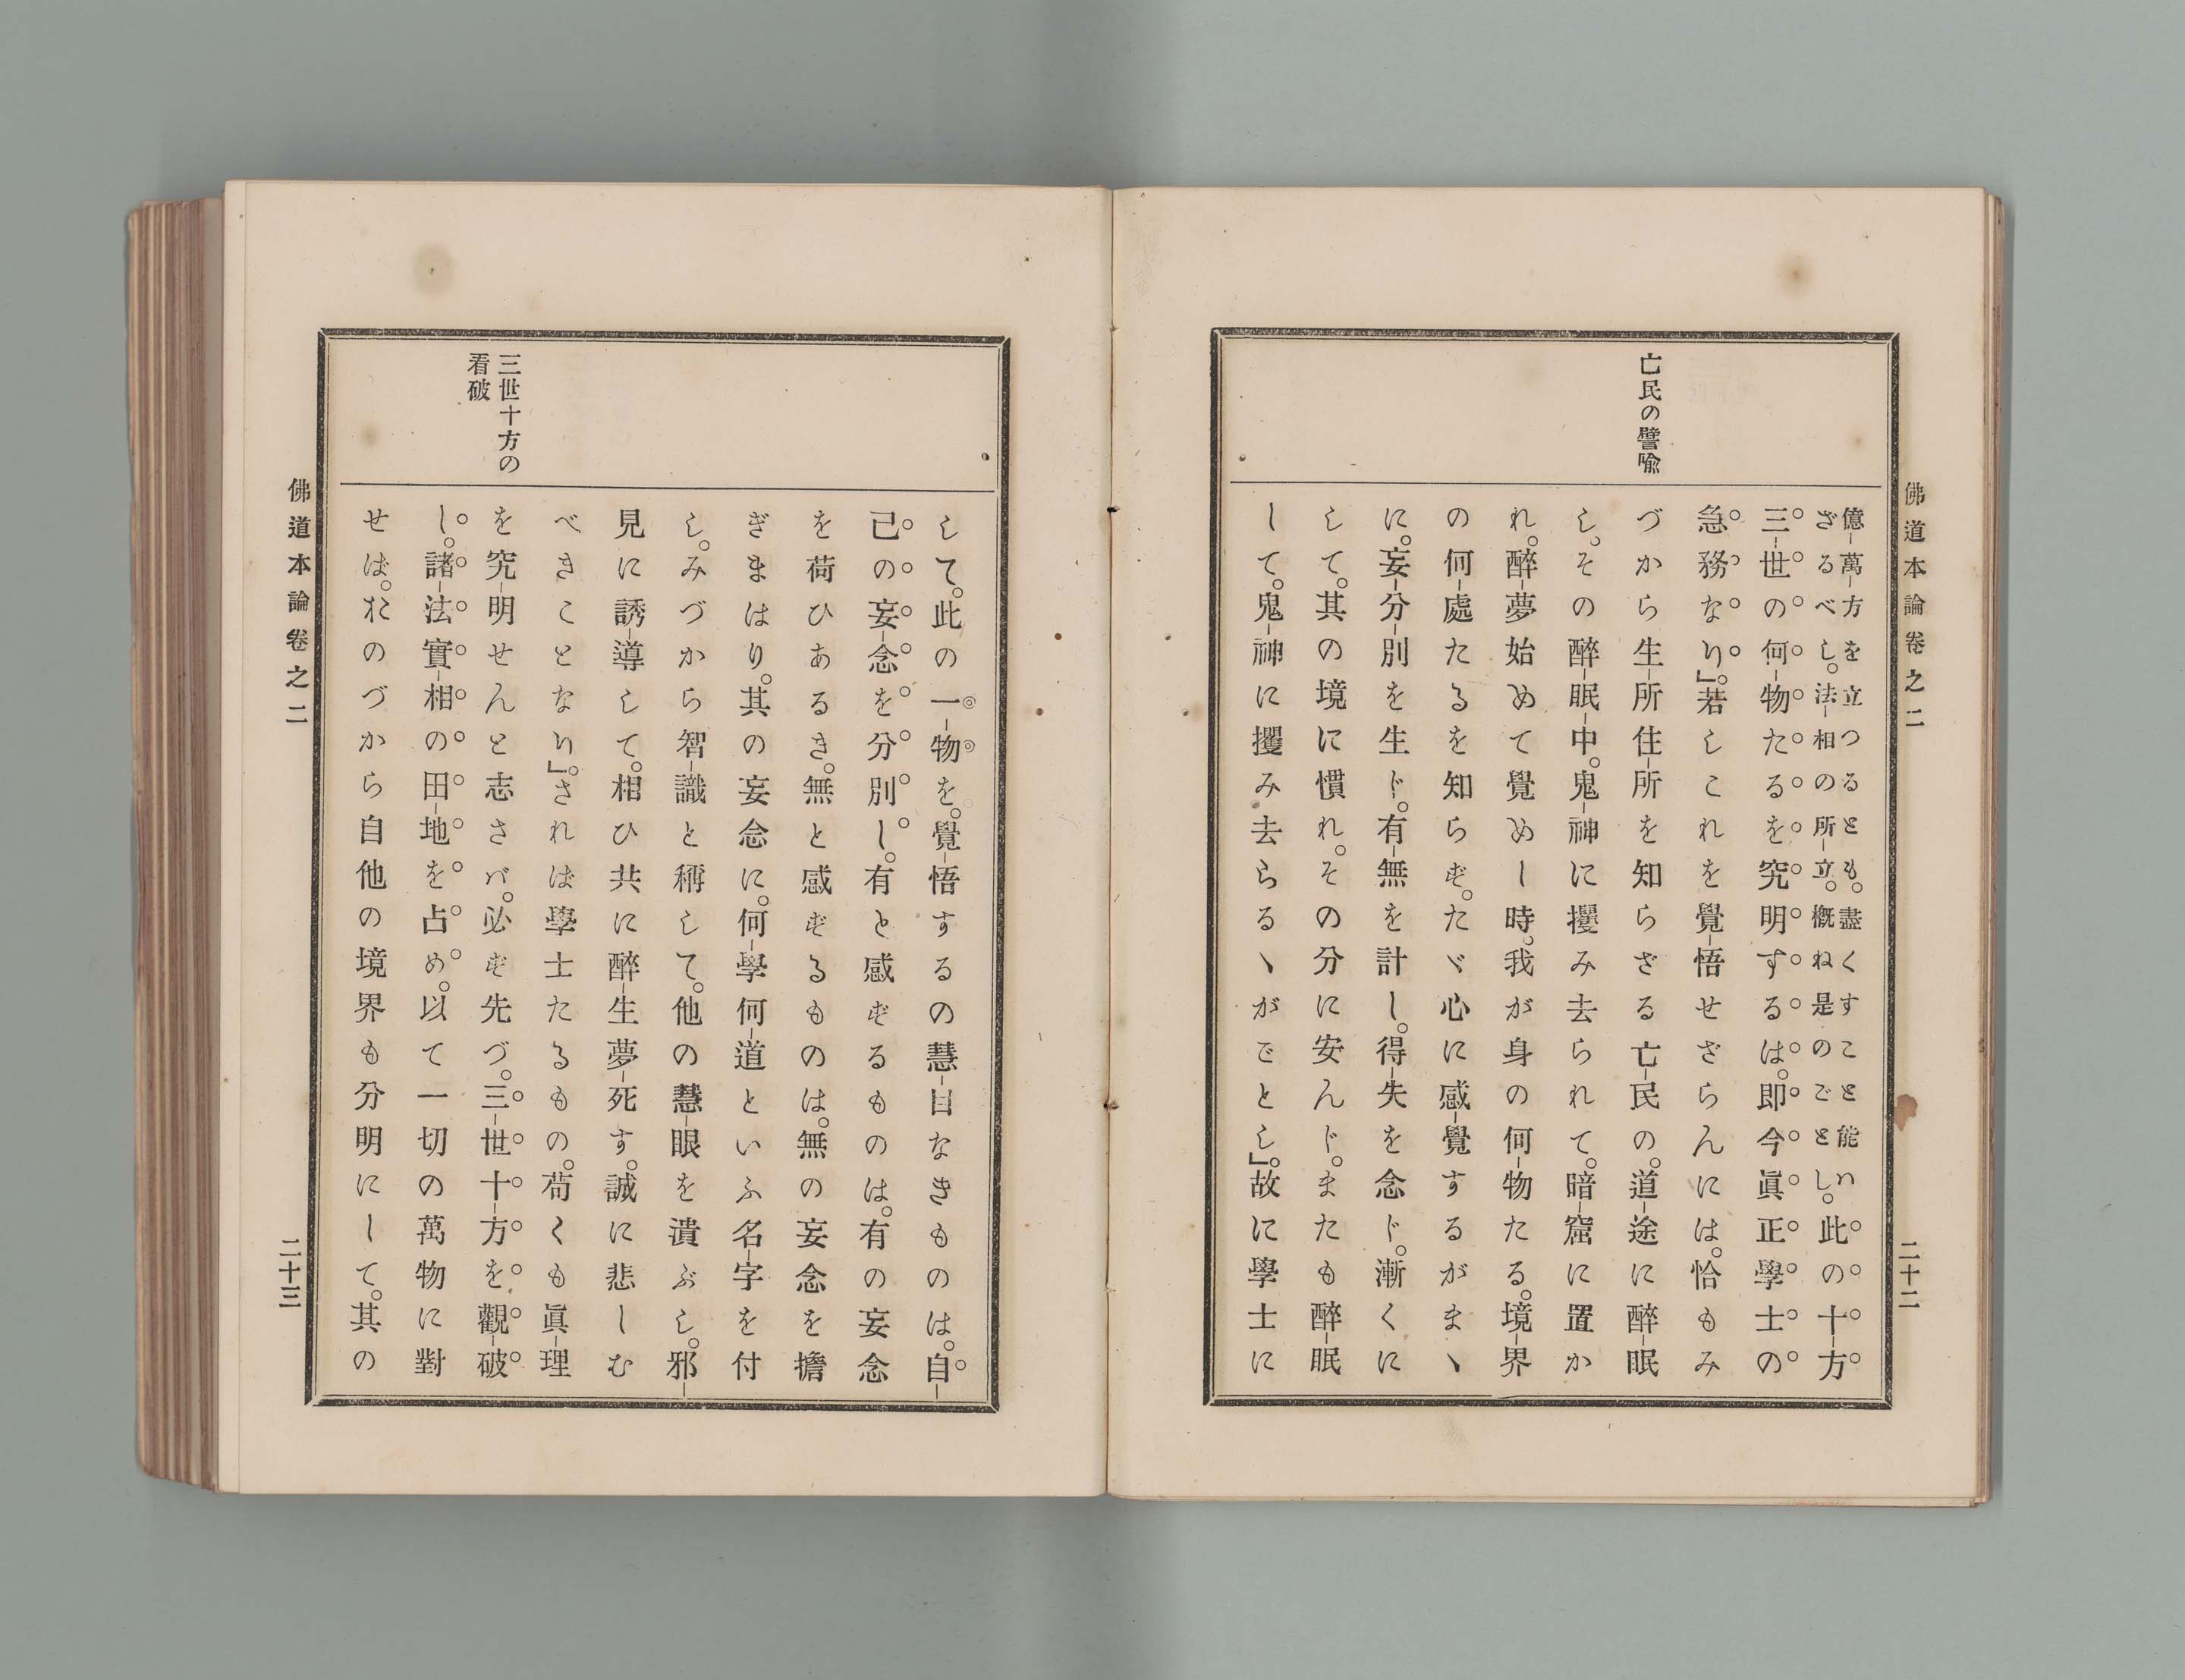 佛道本論卷之二
二十二
亡民の譬喩
億萬方を立つるとも。盡くすこと能ハ
ざるべし。法相の所立。概ね是のごとし。此の十方
三世の何物たるを究明するは。即今眞正學士の
急務なり』。若しこれを覺悟せざらんには。恰もみ
づから生所住所を知らざる亡民の。道途に醉眠
し。その醉眠中。鬼神に攫み去られて。暗窟に置か
れ。醉夢始めて覺めし時。我が身の何物たる。境界
の何處たるを知らず。たゞ心に感覺するがまゝ
に。妄分別を生ド。有無を計し。得失を念ド。漸くに
して。其の境に慣れ。その分に安んド。またも醉眠
して。鬼神に攫み去らるゝがごとし』。故に學士に
して。此の一物を。覺悟するの慧目なきものは。自
己の妄念を分別し。有と感ずるものは。有の妄念
を荷ひあるき。無と感ずるものは。無の妄念を擔
ぎまはり。其の妄念に。何學何道といふ名字を付
し。みづから智識と稱して。他の慧眼を潰ぶし。邪
見に誘導して。相ひ共に醉生夢死す。誠に悲しむ
べきことなり』。されば學士たるもの。苟くも眞理
を究明せんと志さバ。必ず先づ。三世十方を觀破
し。諸法實相の田地を占め。以て一切の萬物に對
せば。おのづから自他の境界も分明にして。其の
三世十方の
看破
佛道本論卷之二
二十三